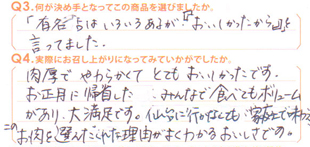 Q3.何が決め手となってこの商品を選びましたか。
「有名」店はいろいろあるが『おいしかったから』と
言ってました。
Q4.実際にお召し上がりになってみていかがでしたか。
肉厚で やわらかくて とてもおいしかったです。
お正月に帰省した みんなで食べてもボリューム
があり、大満足です。仙台に行かなくても 家庭で味わえ
このお肉を選んだ 理由がよくわかるおいしさです。